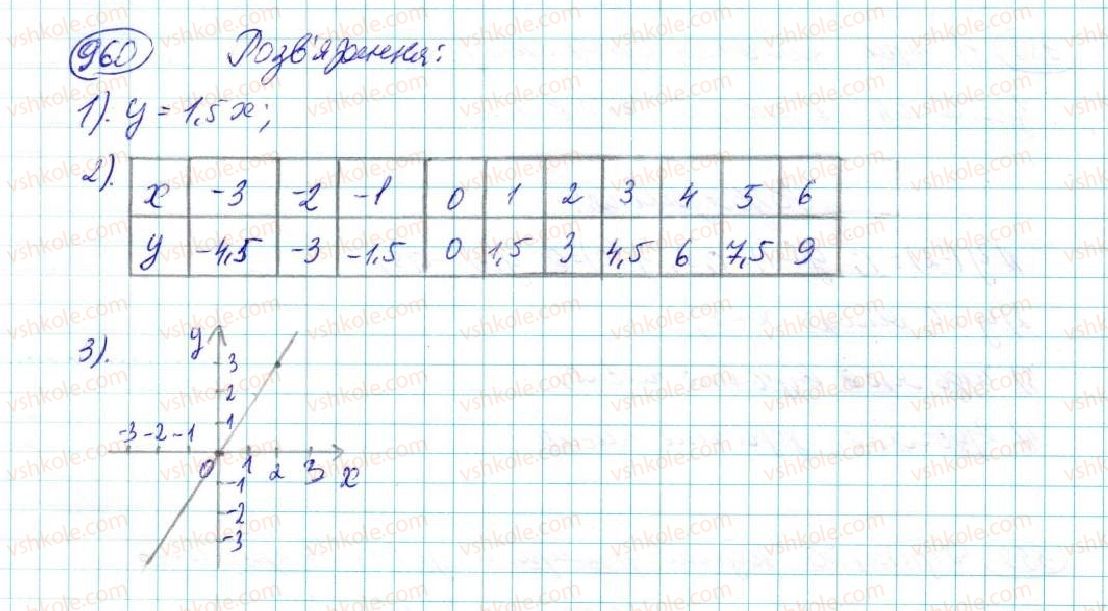 960 Розв'язання:
1). y = 1,5x;
2). x -3 -2 -1 0 1 2 3 4 5 6
y -4,5 -3 -1,5 0 1,5 3 4,5 6 7,5 9
3). y
3
2
1
-3 -2 -1
0 1 2 3 x
-1
-2
-3
vshkole.com